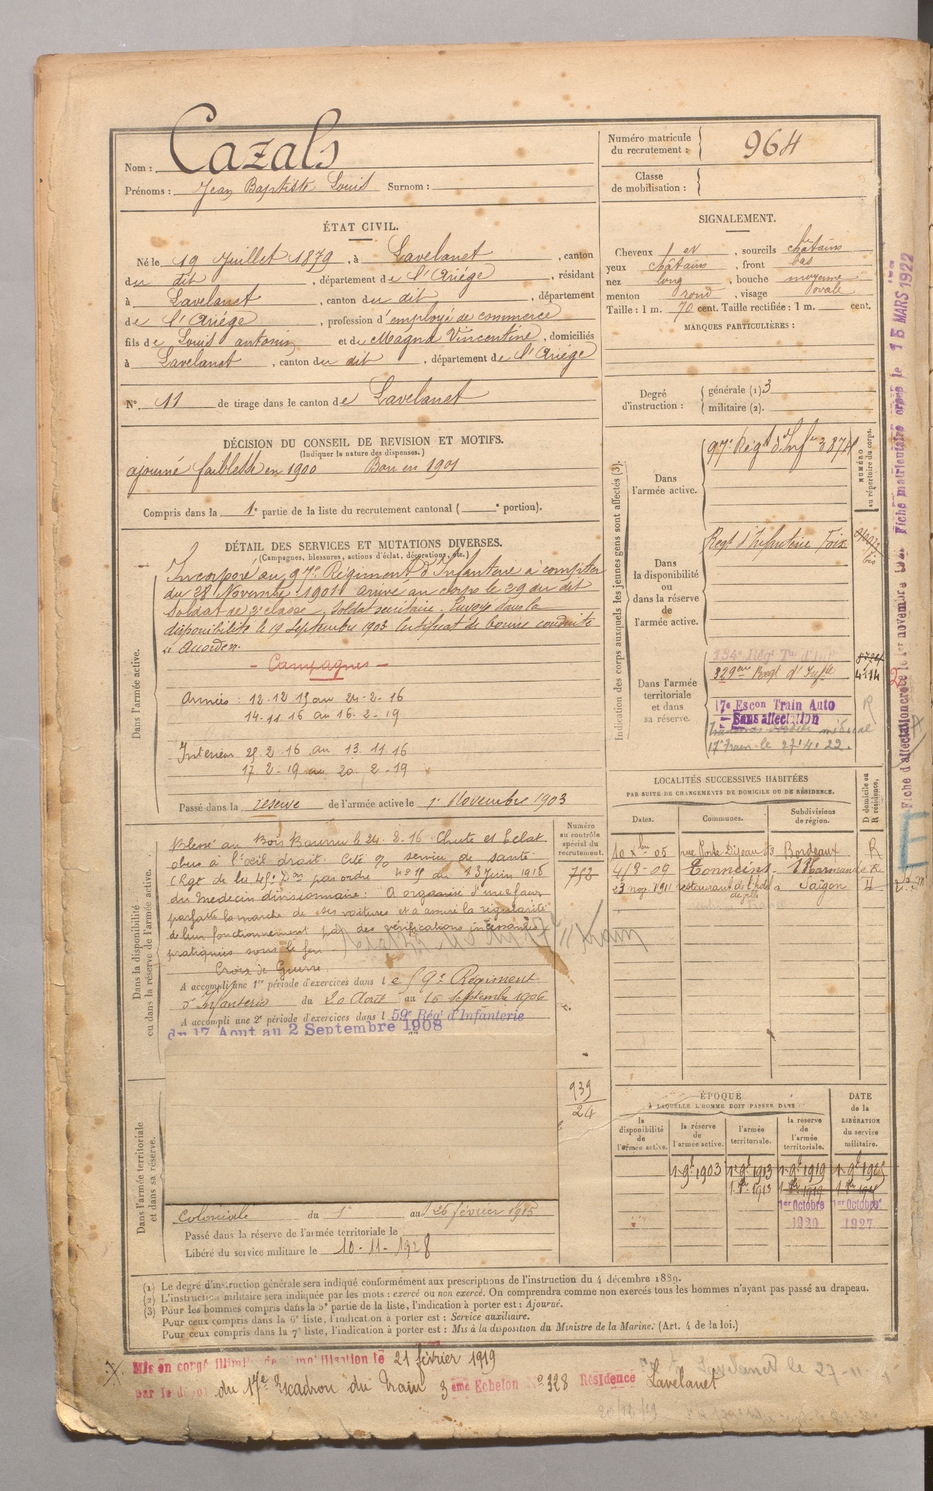 Nom : Cazals
Prénoms : Jean Baptiste Louis Surnom :
Numéro matricule du recrutement : 964
Classe de mobilisation :
ÉTAT CIVIL.
Né le 19 Juillet 1879, à Lavelanet, canton
du dit, département de l'Ariége, résidant
à Lavelanet, canton du dit, département
de l'Ariége, profession d'employé de commerce
fils de Louis antonin et de Magna Vincentine, domiciliés
à Lavelanet, canton du dit, département de l'Ariége
N° 11 de tirage dans le canton de Lavelanet
SIGNALEMENT.
Cheveux et, sourcils châtains
yeux châtains, front bas
nez long, bouche moyenne
menton rond, visage ovale
Taille : 1 m. 70 cent. Taille rectifiée : 1 m. cent.
MARQUES PARTICULIÈRES :
Degré d'instruction : générale (1) 3
militaire (2).
DÉCISION DU CONSEIL DE REVISION ET MOTIFS.
(Indiquer la nature des dispenses.)
ajourné faiblesse en 1900 Bon en 1901
Compris dans la 1e partie de la liste du recrutement cantonal ( e portion).
DÉTAIL DES SERVICES ET MUTATIONS DIVERSES.
(Campagnes, blessures, actions d'éclat, décorations, etc.)
Dans l'armée active.
Incorporé au 97e Régiment d'Infanterie à compter
du 28 Novembre 1901 arrivé au corps le 29 du dit
Soldat de 2e classe. Soldat secrétaire. Envoyé dans la
disponibilité le 19 Septembre 1903 Certificat de bonne conduite
" Accordé".
- Campagnes -
Armées : 12-12 15 au 24-2-16
14-11 16 au 16-2-19
Intérieur 25 2 16 au 13 11 16
17 2 -19 au 20 2-19
Passé dans la réserve de l'armée active le 1er Novembre 1903
Indication des corps auxquels les jeunes gens sont affectés (3).
NUMÉRO au répertoire du corps.
Dans l'armée active.
97e Régt d'Infie 3874
Dans la disponibilité ou dans la réserve de l'armée active.
Regt d'Infanterie Foix
Dans l'armée territoriale et dans sa réserve.
134e Regt Tal d'Inf
329eme Regt d'Infie 4214
17e Escon Train Auto
Sans affectation
17e Train le 27.4.22.
LOCALITÉS SUCCESSIVES HABITÉES
PAR SUITE DE CHANGEMENTS DE DOMICILE OU DE RÉSIDENCE.
Dates. Communes. Subdivisions de région. D domicile ou R résidence.
10 Xbre 05 rue Porte Dijeaux 73 Bordeaux R
4/8-09 Tonneins Marmande R
23 nov. 1911 restaurant de l'hôtel Saïgon
Dans la disponibilité ou dans la réserve de l'armée active.
Numéro au contrôle spécial du recrutement.
752
Blessé au Bois Bourrus le 24-2-16 Chute et Eclat
obus à l'œil droit. Cité
par ordre n° 15 du 23 Juin 1918
du médecin divisionnaire : A organisé d'une façon
parfaite la marche de ses voitures et a assuré la régularité
de leur fonctionnement par des vérifications incessantes
pratiquées sous le feu
Croix de Guerre
A accompli une 1re période d'exercices dans le 59e Régiment
d'Infanterie du 20 Août au 16 Septembre 1906
A accompli une 2e période d'exercices dans l 59e Régt d'Infanterie
du 17 Aout au 2 Septembre 1908
939
24
Dans l'armée territoriale et dans sa réserve.
Coloniale du 1 au 26 février 1915
Passé dans la réserve de l'armée territoriale le
Libéré du service militaire le 10-11-1928
ÉPOQUE
A LAQUELLE L'HOMME DOIT PASSER DANS
la disponibilité de l'armée active. la réserve de l'armée active. l'armée territoriale. la réserve de l'armée territoriale. DATE de la LIBÉRATION du service militaire.
1er 9bre 1903 1er 9bre 1913 1er 9bre 1919
1er Octobre 1920 1er Octobre 1927
(1) Le degré d'instruction générale sera indiqué conformément aux prescriptions de l'instruction du 4 décembre 1889.
(2) L'instruction militaire sera indiquée par les mots : exercé ou non exercé. On comprendra comme non exercés tous les hommes n'ayant pas passé au drapeau.
(3) Pour les hommes compris dans la 5e partie de la liste, l'indication à porter est : Ajourné.
Pour ceux compris dans la 6e liste, l'indication à porter est : Service auxiliaire.
Pour ceux compris dans la 7e liste, l'indication à porter est : Mis à la disposition du Ministre de la Marine. (Art. 4 de la loi.)
Mis en congé illimité de démobilisation le 21 février 1919
par le dépôt du 17e Escadron du Train 3eme Echelon N° 328 Résidence Lavelanet
Lavelanet le 27-11
Fiche matriculaire créée le 15 MARS 1922